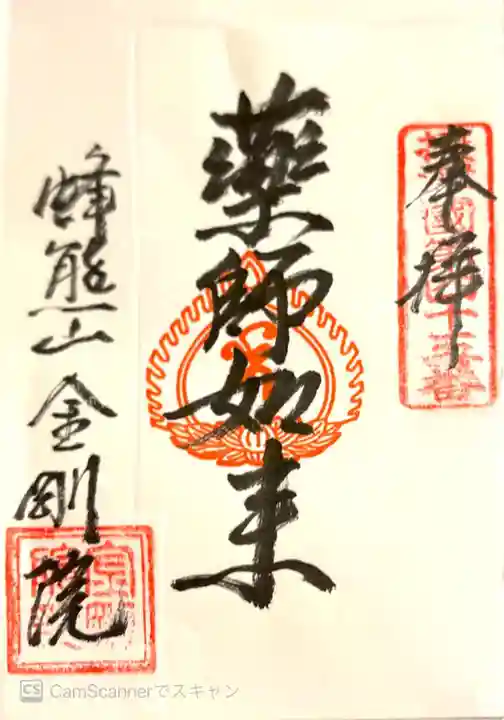 奉拝
薬師如来
蜂熊山 金剛院
CS CamScannerでスキャン